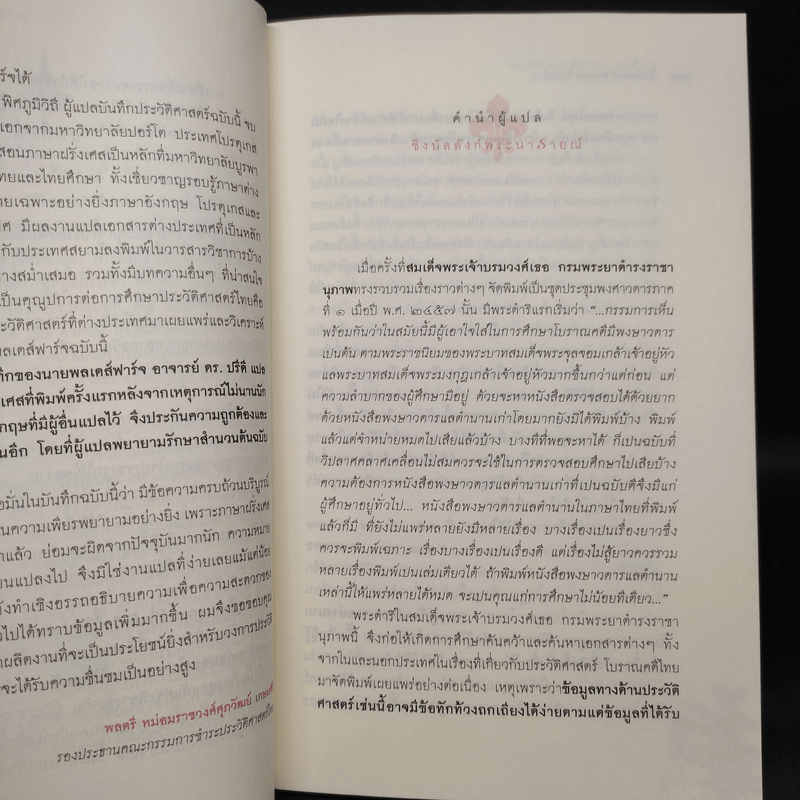 ร์จได้
พิศภูมิวิถี ผู้แปลบันทึกประวัติศาสตร์ฉบับนี้ จบ
เอกจากมหาวิทยาลัยปอร์โต ประเทศโปรตุเกส
สอนภาษาฝรั่งเศสเป็นหลักที่มหาวิทยาลัยบูรพา
ทยและไทยศึกษา ทั้งเชี่ยวชาญรอบรู้ภาษาต่าง
ายเฉพาะอย่างยิ่งภาษาอังกฤษ โปรตุเกสและ
ศ มีผลงานแปลเอกสารต่างประเทศที่เป็นหลัก
กับประเทศสยามลงพิมพ์ในวารสารวิชาการบ้าง
างสม่ำเสมอ รวมทั้งมีบทความอื่นๆ ที่น่าสนใจ
เป็นคุณูปการต่อการศึกษาประวัติศาสตร์ไทยคือ
ะวัติศาสตร์ที่ต่างประเทศมาเผยแพร่และวิเคราะห์
พลเดส์ฟาร์จฉบับนี้
ทึกของนายพลเดส์ฟาร์จ อาจารย์ ดร. ปรีดี แปล
เศสที่พิมพ์ครั้งแรกหลังจากเหตุการณ์ไม่นานนัก
กฤษที่มีผู้อื่นแปลไว้ จึงประกันความถูกต้องและ
นอีก โดยที่ผู้แปลพยายามรักษาสำนวนต้นฉบับ
อมั่นในบันทึกฉบับนี้ว่า มีข้อความครบถ้วนบริบูรณ์
นความเพียรพยายามอย่างยิ่ง เพราะภาษาฝรั่งเศส
าแล้ว ย่อมจะผิดจากปัจจุบันมากนัก ความหมาย
วนแปลงไป จึงมิใช่งานแปลที่ง่ายเลยแม้แต่น้อย
ังทำเชิงอรรถอธิบายความเพื่อความสะดวกของ
วไปได้ทราบข้อมูลเพิ่มมากขึ้น ผมจึงขอขอบคุณ
าผลิตงานที่จะเป็นประโยชน์ยิ่งสำหรับวงการประวัติ
ว่จะได้รับความชื่นชมเป็นอย่างสูง
พลตรี หม่อมราชวงศ์ศุภวัฒย์ เกษมศรี
รองประธานคณะกรรมการชำระประวัติศาสตร์ไทย
คำนำผู้แปล
ชิงบัลลังก์พระนารายณ์
เมื่อครั้งที่สมเด็จพระเจ้าบรมวงศ์เธอ กรมพระยาดำรงราชา
นุภาพทรงรวบรวมเรื่องราวต่างๆ จัดพิมพ์เป็นชุดประชุมพงศาวดารภาค
ที่ ๑ เมื่อปี พ.ศ. ๒๔๕๗ นั้น มีพระดำริแรกเริ่มว่า “...กรรมการเห็น
พร้อมกันว่าในสมัยนี้มีผู้เอาใจใส่ในการศึกษาโบราณคดีมีพงษาวดาร
เปนต้น ตามพระราชนิยมของพระบาทสมเด็จพระจุลจอมเกล้าเจ้าอยู่หัว
แลพระบาทสมเด็จพระมงกุฎเกล้าเจ้าอยู่หัวมากขึ้นกว่าแต่ก่อน แต่
ความลำบากของผู้ศึกษามีอยู่ ด้วยจะหาหนังสือตรวจสอบได้ด้วยยาก
ด้วยหนังสือพงษาวดารแลตำนานเก่าโดยมากยังมิได้พิมพ์บ้าง พิมพ์
แล้วแต่จำหน่ายหมดไปเสียแล้วบ้าง บางทีที่พอจะหาได้ ก็เปนฉบับที่
วิปลาศคลาศเคลื่อนไม่สมควรจะใช้ในการตรวจสอบศึกษาไปเสียบ้าง
ความต้องการหนังสือพงษาวดารแลตำนานเก่าที่เปนฉบับดีจึงมีแก่
ผู้ศึกษาอยู่ทั่วไป... หนังสือพงษาวดารแลตำนานในภาษาไทยที่พิมพ์
แล้วก็มี ที่ยังไม่แพร่หลายยังมีหลายเรื่อง บางเรื่องเปนเรื่องยาวซึ่ง
ควรจะพิมพ์เฉภาะ เรื่องบางเรื่องเปนเรื่องดี แต่เรื่องไม่สู้ยาวควรรวม
หลายเรื่องพิมพ์เปนเล่มเดียวได้ ถ้าพิมพ์หนังสือพงษาวดารแลตำนาน
เหล่านี้ให้แพร่หลายได้หมด จะเปนคุณแก่การศึกษาไม่น้อยทีเดียว...”
พระดำริในสมเด็จพระเจ้าบรมวงศ์เธอ กรมพระยาดำรงราชา
นุภาพนี้ จึงก่อให้เกิดการศึกษาค้นคว้าและค้นหาเอกสารต่างๆ ทั้ง
จากในและนอกประเทศในเรื่องที่เกี่ยวกับประวัติศาสตร์ โบราณคดีไทย
มาจัดพิมพ์เผยแพร่อย่างต่อเนื่อง เหตุเพราะว่าข้อมูลทางด้านประวัติ
ศาสตร์เช่นนี้อาจมีข้อทักท้วงถกเถียงได้ง่ายตามแต่ข้อมูลที่ได้รับ